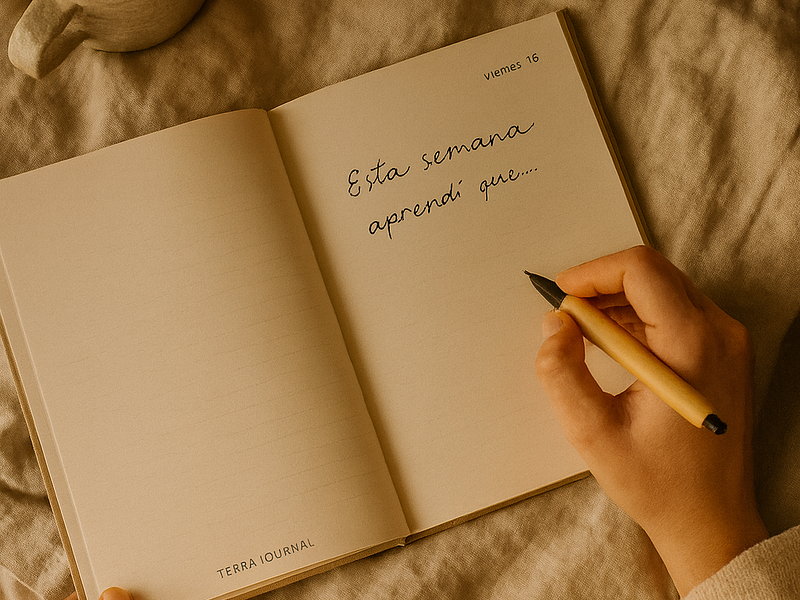 viernes 16
Esta semana
aprendí que....
TERRA JOURNAL